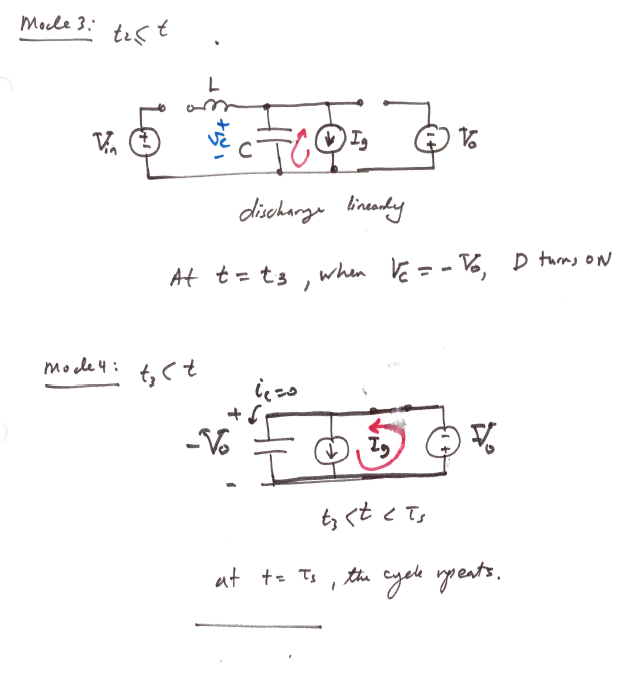 Mode 3: t₂ < t
L
Vin
+
Vc
-
C
Ig
Vo
discharge linearly
At t = t₃, when Vc = -Vo, D turns ON
Mode 4: t₃ < t
ic=0
+
-Vo
-
Ig
Vo
t₃ < t < Ts
at t = Ts, the cycle repeats.